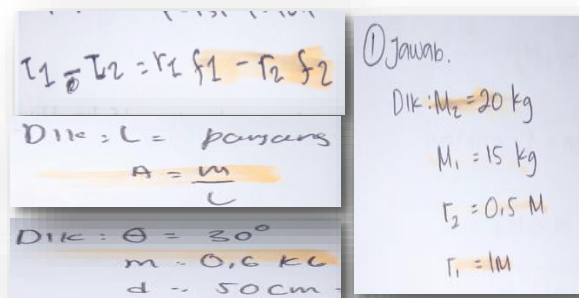 τ1 - τ2 = r1 f1 - r2 f2
Dik : L = panjang
A = m/L
Dik : θ = 30°
m = 0,6 KG
d = 50cm
① Jawab.
Dik : M2 = 20 kg
M1 = 15 kg
r2 = 0,5 M
r1 = 1M